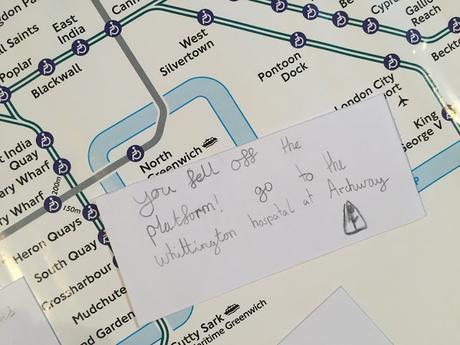 Gallions
Reach
Cyprus
Beckton
East
India
All Saints
Poplar
Blackwall
West
Silvertown
Pontoon
Dock
London City
King
George V
North
Greenwich
India
Quay
200m
150m
Heron Quays
South Quay
Crossharbour
Mudchute
Cutty Sark
Maritime Greenwich
You fell off the
platform! go to the
whittington hospatal at Archway